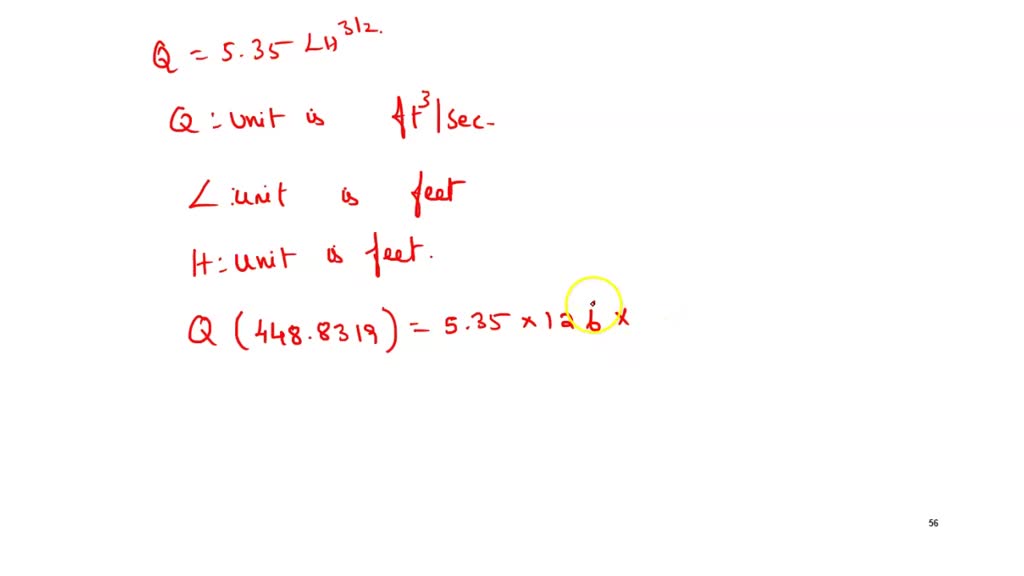 Q = 5.35 LH^3/2.
Q : unit is ft^3/sec-
L : unit is feet
H : unit is feet.
Q (448.8319) = 5.35 × 12 b ×
56